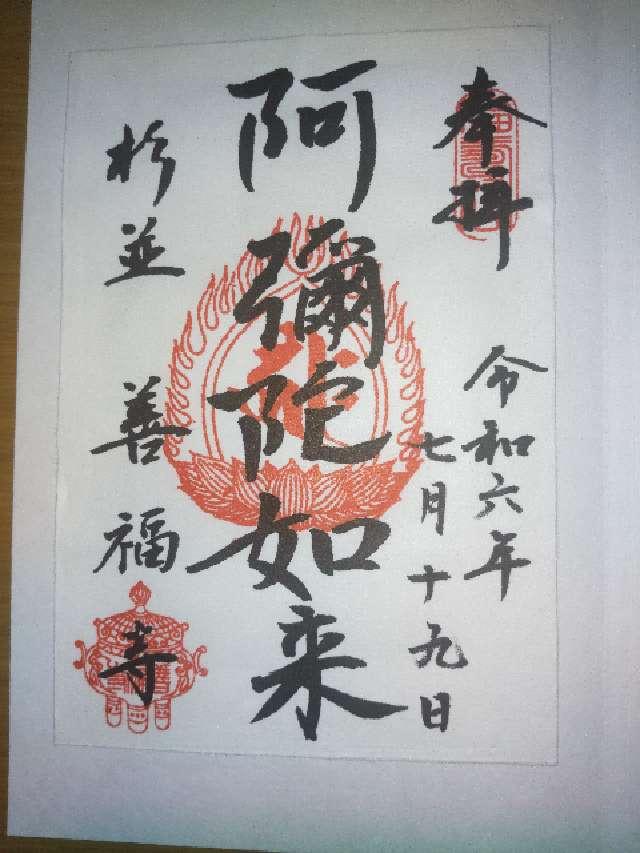 奉拝
令和六年
七月十九日
阿彌陀如来
杉並
善福寺